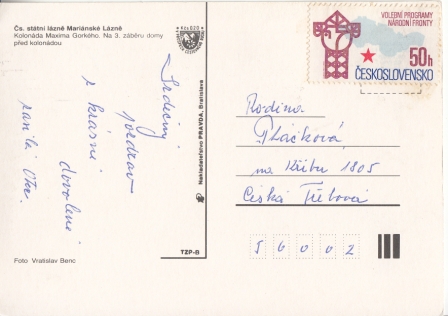 Čs. státní lázně Mariánské Lázně
Kolonáda Maxima Gorkého. Na 3. záběru domy
před kolonádou
Srdečný
pozdrav
z krásné
dovolené
Foto Vratislav Benc
Nakladatelství PRAVDA, Bratislava
TZP-B
VOLEBNÍ PROGRAMY
NÁRODNÍ FRONTY
50h
ČESKOSLOVENSKO
Rodina
Pláčková
na Křibu 1805
Česká Třebová
56002